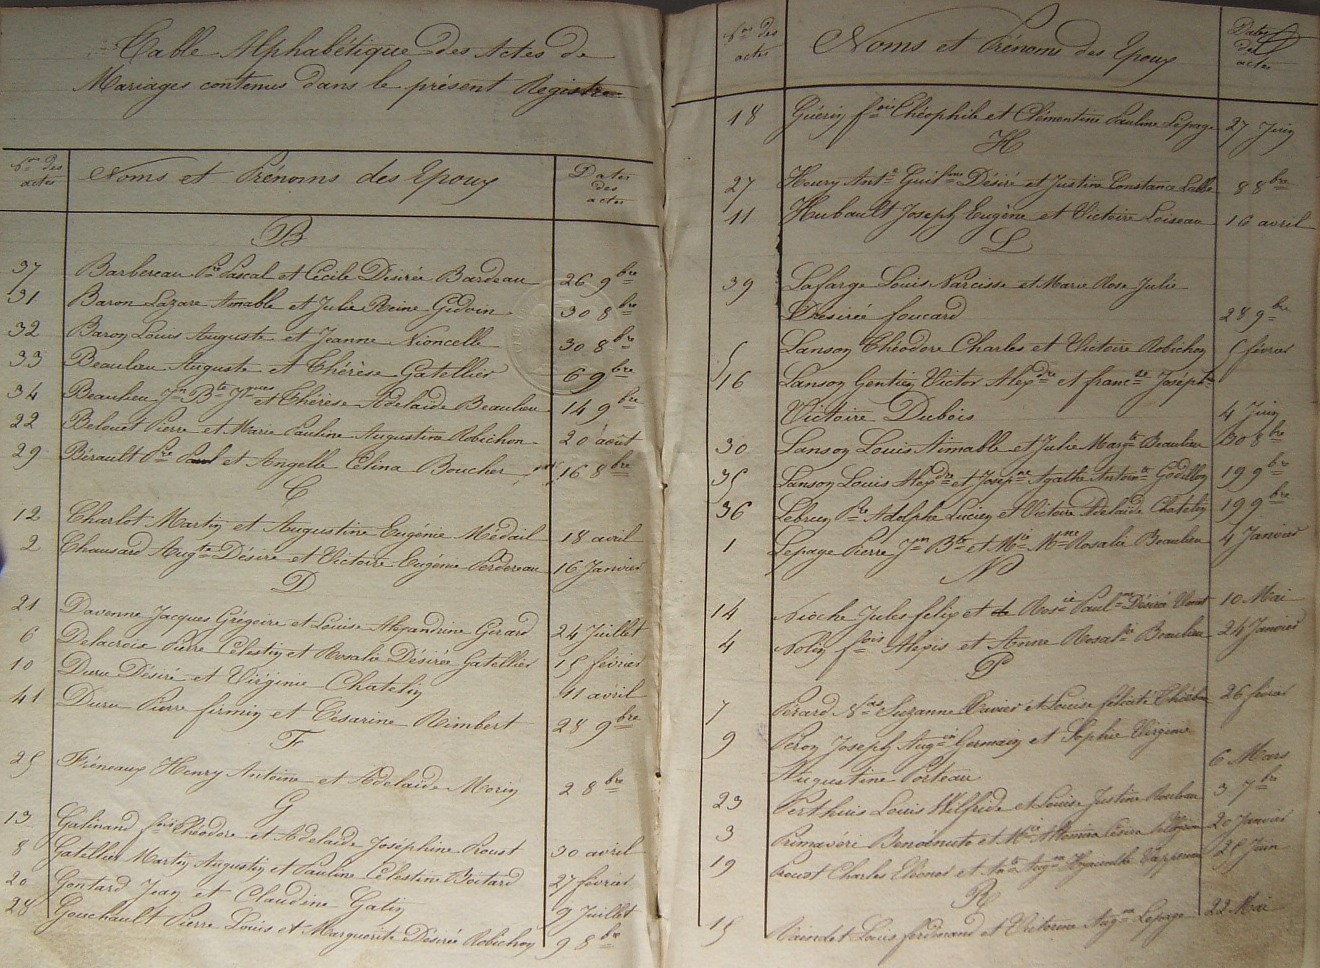 Table Alphabétique des Actes de
Mariages contenus dans le présent Registre
Nos des actes Noms et Prénoms des Epoux Dates des actes
B
37 Barbereau Pre Pascal et Cécile Désirée Bardeau 26 9bre
31 Baron Lazare Amable et Julie Reine Gidoin 30 8bre
32 Baron Louis Auguste et Jeanne Nioncelle 30 8bre
33 Beaulieu Auguste et Thérèse Gatellier 6 9bre
34 Beaulieu Jn Bte Jques et Thérèse Adelaïde Beaulieu 14 9bre
22 Belouet Pierre et Marie Pauline Augustine Robichon 20 août
29 Bérault Pre Paul et Angelle Célina Boucher 16 8bre
C
12 Charlot Martin et Augustine Eugénie Médail 18 avril
2 Chausard Augte Désiré et Victoire Eugénie Perdereau 16 Janvier
D
21 Davenne Jacques Grégoire et Louise Alexandrine Gérard 24 Juillet
6 Delacroix Pierre Célestin et Rosalie Désirée Gatellier 15 février
10 Duru Désiré et Virginie Chatelin 11 avril
41 Duru Pierre firmin et Césarine Rimbert 28 9bre
F
25 Fréneaux Henry Antoine et Adelaïde Morin 2 8bre
G
13 Galinand fois Théodore et Adelaïde Joséphine Proust 30 avril
8 Gatellier Martin Augustin et Pauline Célestine Boitard 27 février
20 Gontard Jean et Claudine Galin 9 Juillet
28 Gouchault Pierre Louis et Marguerite Désirée Robichon 9 8bre
Nos des actes Noms et Prénoms des Epoux Dates des actes
18 Guérin fois Théophile et Clémentine Pauline Lepage 27 Juin
H
27 Henry Ante Désiré et Justine Constance 8 8bre
11 Hubault Joseph Eugène et Victoire Loiseau 16 avril
L
39 Lafarge Louis Narcisse et Marie Rose Julie
Désirée foucard 28 9bre
5 Lanson Théodore Charles et Victoire Robichon 5 février
16 Lanson Gentien Victor Alexdre et france Joséphe
Victoire Dubois 4 Juin
30 Lanson Louis Aimable et Julie Margte Beaulieu 30 8bre
35 Lanson Louis Alexdre et Joséphne Agathe Godillon 19 9bre
36 Lebrun Pre Adolphe Lucien et Victoire Adelaïde Chatelin 19 9bre
1 Lepage Pierre Jn Bte et Mie Rosalie Beaulieu 4 Janvier
N
14 Nioche Jules félix et Désirée 10 Mai
4 Nolin fois Alexis et Anne Rosalie Beaulieu 24 Janvier
P
7 Pérard Nas Suzanne et Louise félicité 26 février
9 Peron Joseph Augin Germain et Sophie Virginie
Augustine Porteau 6 Mars
23 Perthuis Louis Wilfride et Louise Justine 3 7bre
3 Primavéri Benoînuto et 20 Janvier
19 Proust Charles et Hyacinthe 25 Juin
R
15 Louis ferdinand et Victorine Augne Lepage 22 Mai